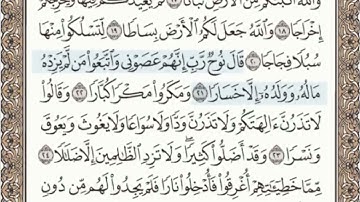 وَٱللَّهُ أَنۢبَتَكُم مِّنَ ٱلۡأَرۡضِ نَبَاتٗا ١٧ ثُمَّ يُعِيدُكُمۡ فِيهَا وَيُخۡرِجُكُمۡ
إِخۡرَاجٗا ١٨ وَٱللَّهُ جَعَلَ لَكُمُ ٱلۡأَرۡضَ بِسَاطٗا ١٩ لِّتَسۡلُكُواْ مِنۡهَا
سُبُلٗا فِجَاجٗا ٢٠ قَالَ نُوحٞ رَّبِّ إِنَّهُمۡ عَصَوۡنِي وَٱتَّبَعُواْ مَن لَّمۡ يَزِدۡهُ
مَالُهُۥ وَوَلَدُهُۥٓ إِلَّا خَسَارٗا ٢١ وَمَكَرُواْ مَكۡرٗا كُبَّارٗا ٢٢ وَقَالُواْ
لَا تَذَرُنَّ ءَالِهَتَكُمۡ وَلَا تَذَرُنَّ وَدّٗا وَلَا سُوَاعٗا وَلَا يَغُوثَ وَيَعُوقَ
وَنَسۡرٗا ٢٣ وَقَدۡ أَضَلُّواْ كَثِيرٗاۖ وَلَا تَزِدِ ٱلظَّٰلِمِينَ إِلَّا ضَلَٰلٗا ٢٤
مِّمَّا خَطِيٓـَٰٔتِهِمۡ أُغۡرِقُواْ فَأُدۡخِلُواْ نَارٗا فَلَمۡ يَجِدُواْ لَهُم مِّن دُونِ